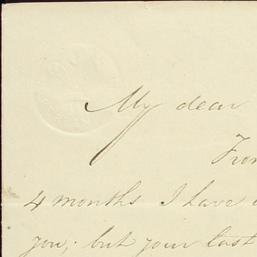 My dear
From
4 months I have
you; but your last